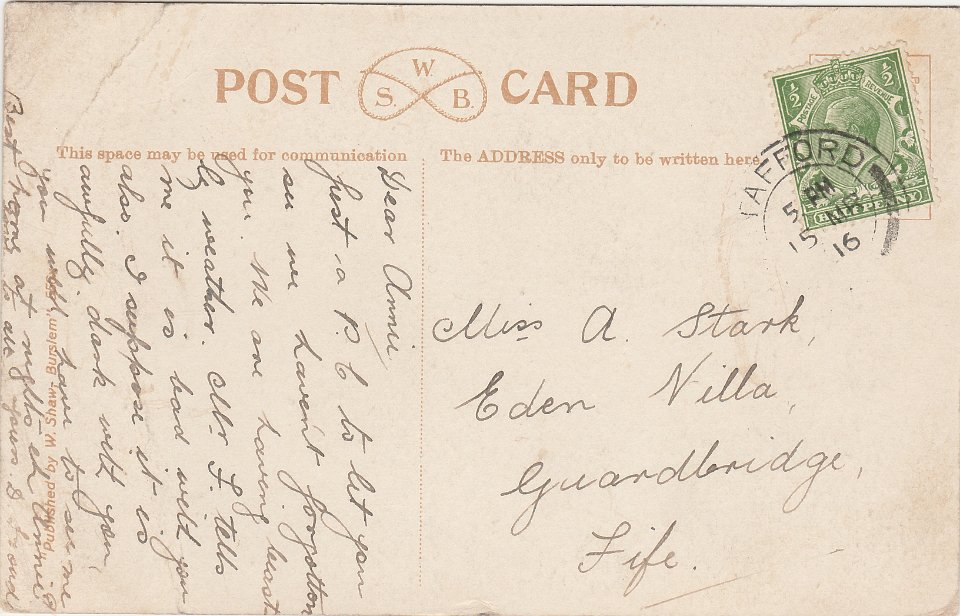 POST CARD
S. W. B.
This space may be used for communication
The ADDRESS only to be written here.
½ ½
POSTAGE REVENUE
HALFPENNY
TAFFORD
5 PM
15 MR
16
Dear Annie,
Just a P. C to let you
see we havent forgotton
you. We are having beast
ly weather. Mr F. tells
me it is bad with you
also. I suppose it is
awfully dark with you,
you will have to see me
home at nights eh Annie?
Best to all yours. D
Miss A. Stark,
Eden Villa,
Guardbridge,
Fife.
"Published by W. Shaw, Burslem"